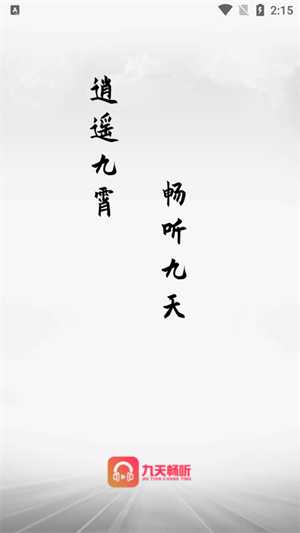 2:15
逍遥九霄
畅听九天
九天畅听
JIU TIAN CHANG TING